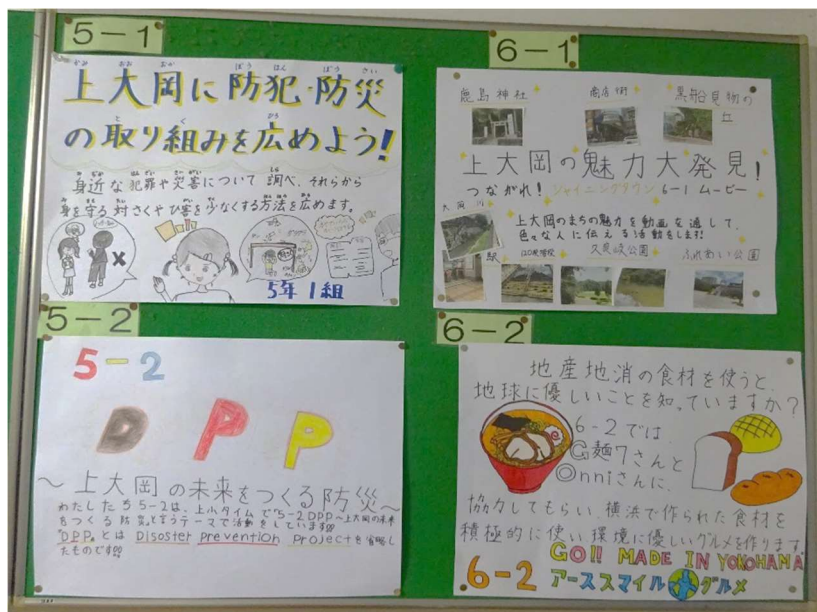 5-1
上大岡に防犯・防災
の取り組みを広めよう!
身近な犯罪や災害について調べ、それらから
身を守る対さくやひ害を少なくする方法を広めます。
5年1組
6-1
鹿島神社
商店街
黒船見物の
丘
上大岡の魅力大発見!
つながれ! シャイニングタウン 6-1 ムービー
大岡川
上大岡のまちの魅力を動画を通して、
色々な人に伝える活動をします!
駅
久良岐公園
ふれあい公園
5-2
5-2
DPP
〜上大岡の未来をつくる防災〜
わたしたち5-2は、上小タイムで"5-2DPP〜上大岡の未来
をつくる防災〟と言うテーマで活動をしています!!!
"DPP〟とは Disoster prevention projectを省略し
たものです!!!
6-2
地産地消の食材を使うと、
地球に優しいことを知っていますか?
6-2では
G麺7さんと
Onniさんに、
協力してもらい、横浜で作られた食材を
積極的に使い環境に優しいグルメを作ります。
GO!! MADE IN YOKOHAMA
6-2 アーススマイルグルメ